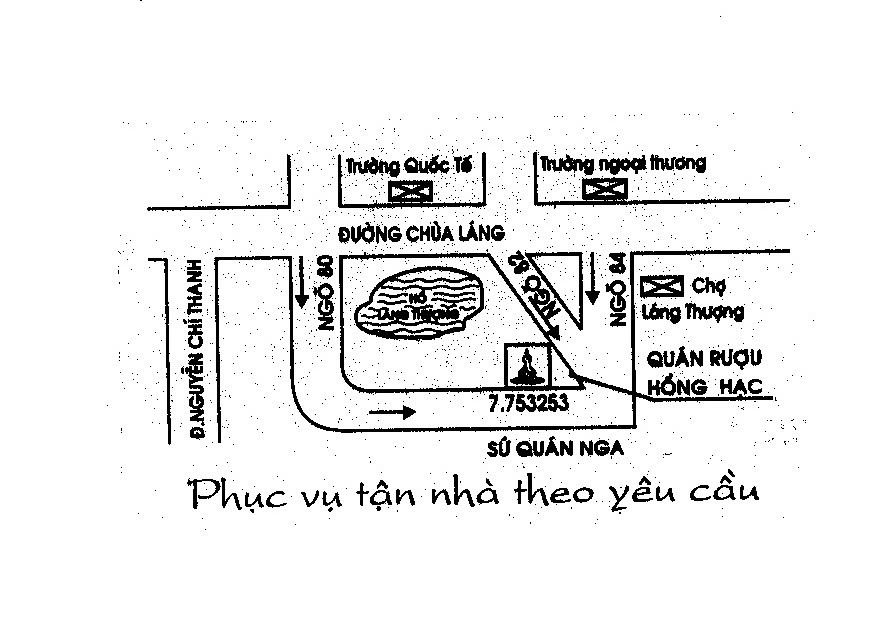 Trường Quốc Tế
Trường ngoại thương
ĐƯỜNG CHÙA LÁNG
Đ.NGUYỄN CHÍ THANH
NGÕ 80
HỒ
LÁNG THƯỢNG
NGÕ 82
NGÕ 84
Chợ
Láng Thượng
QUÁN RƯỢU
HỒNG HẠC
7.753253
SỨ QUÁN NGA
Phục vụ tận nhà theo yêu cầu